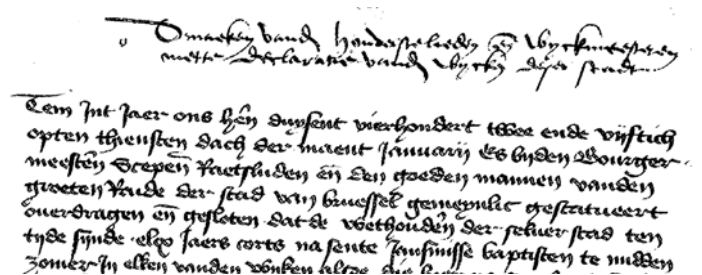 Tmaeken vanden hondertstelieden en̄ wyckmeesteren
mette declaratie vanden wycken deser stadt
Item Int Jaer ons hẽn duysent vierhondert twee ende vijftich
opten thiensten dach der maent Januarij Es byden Bourger
meestẽn Scepen̄ Raetsluden en̄ den goeden mannen vanden
groeten Raide der stad van bruessel gemeynlic gestatueert
overdragen en̄ gesloten dat de wethoudẽn der selver stad ten
tyde synde elcx Jaers corts na sente Jansmisse baptisten te midden
zomer In elken vanden wyken alsoe die